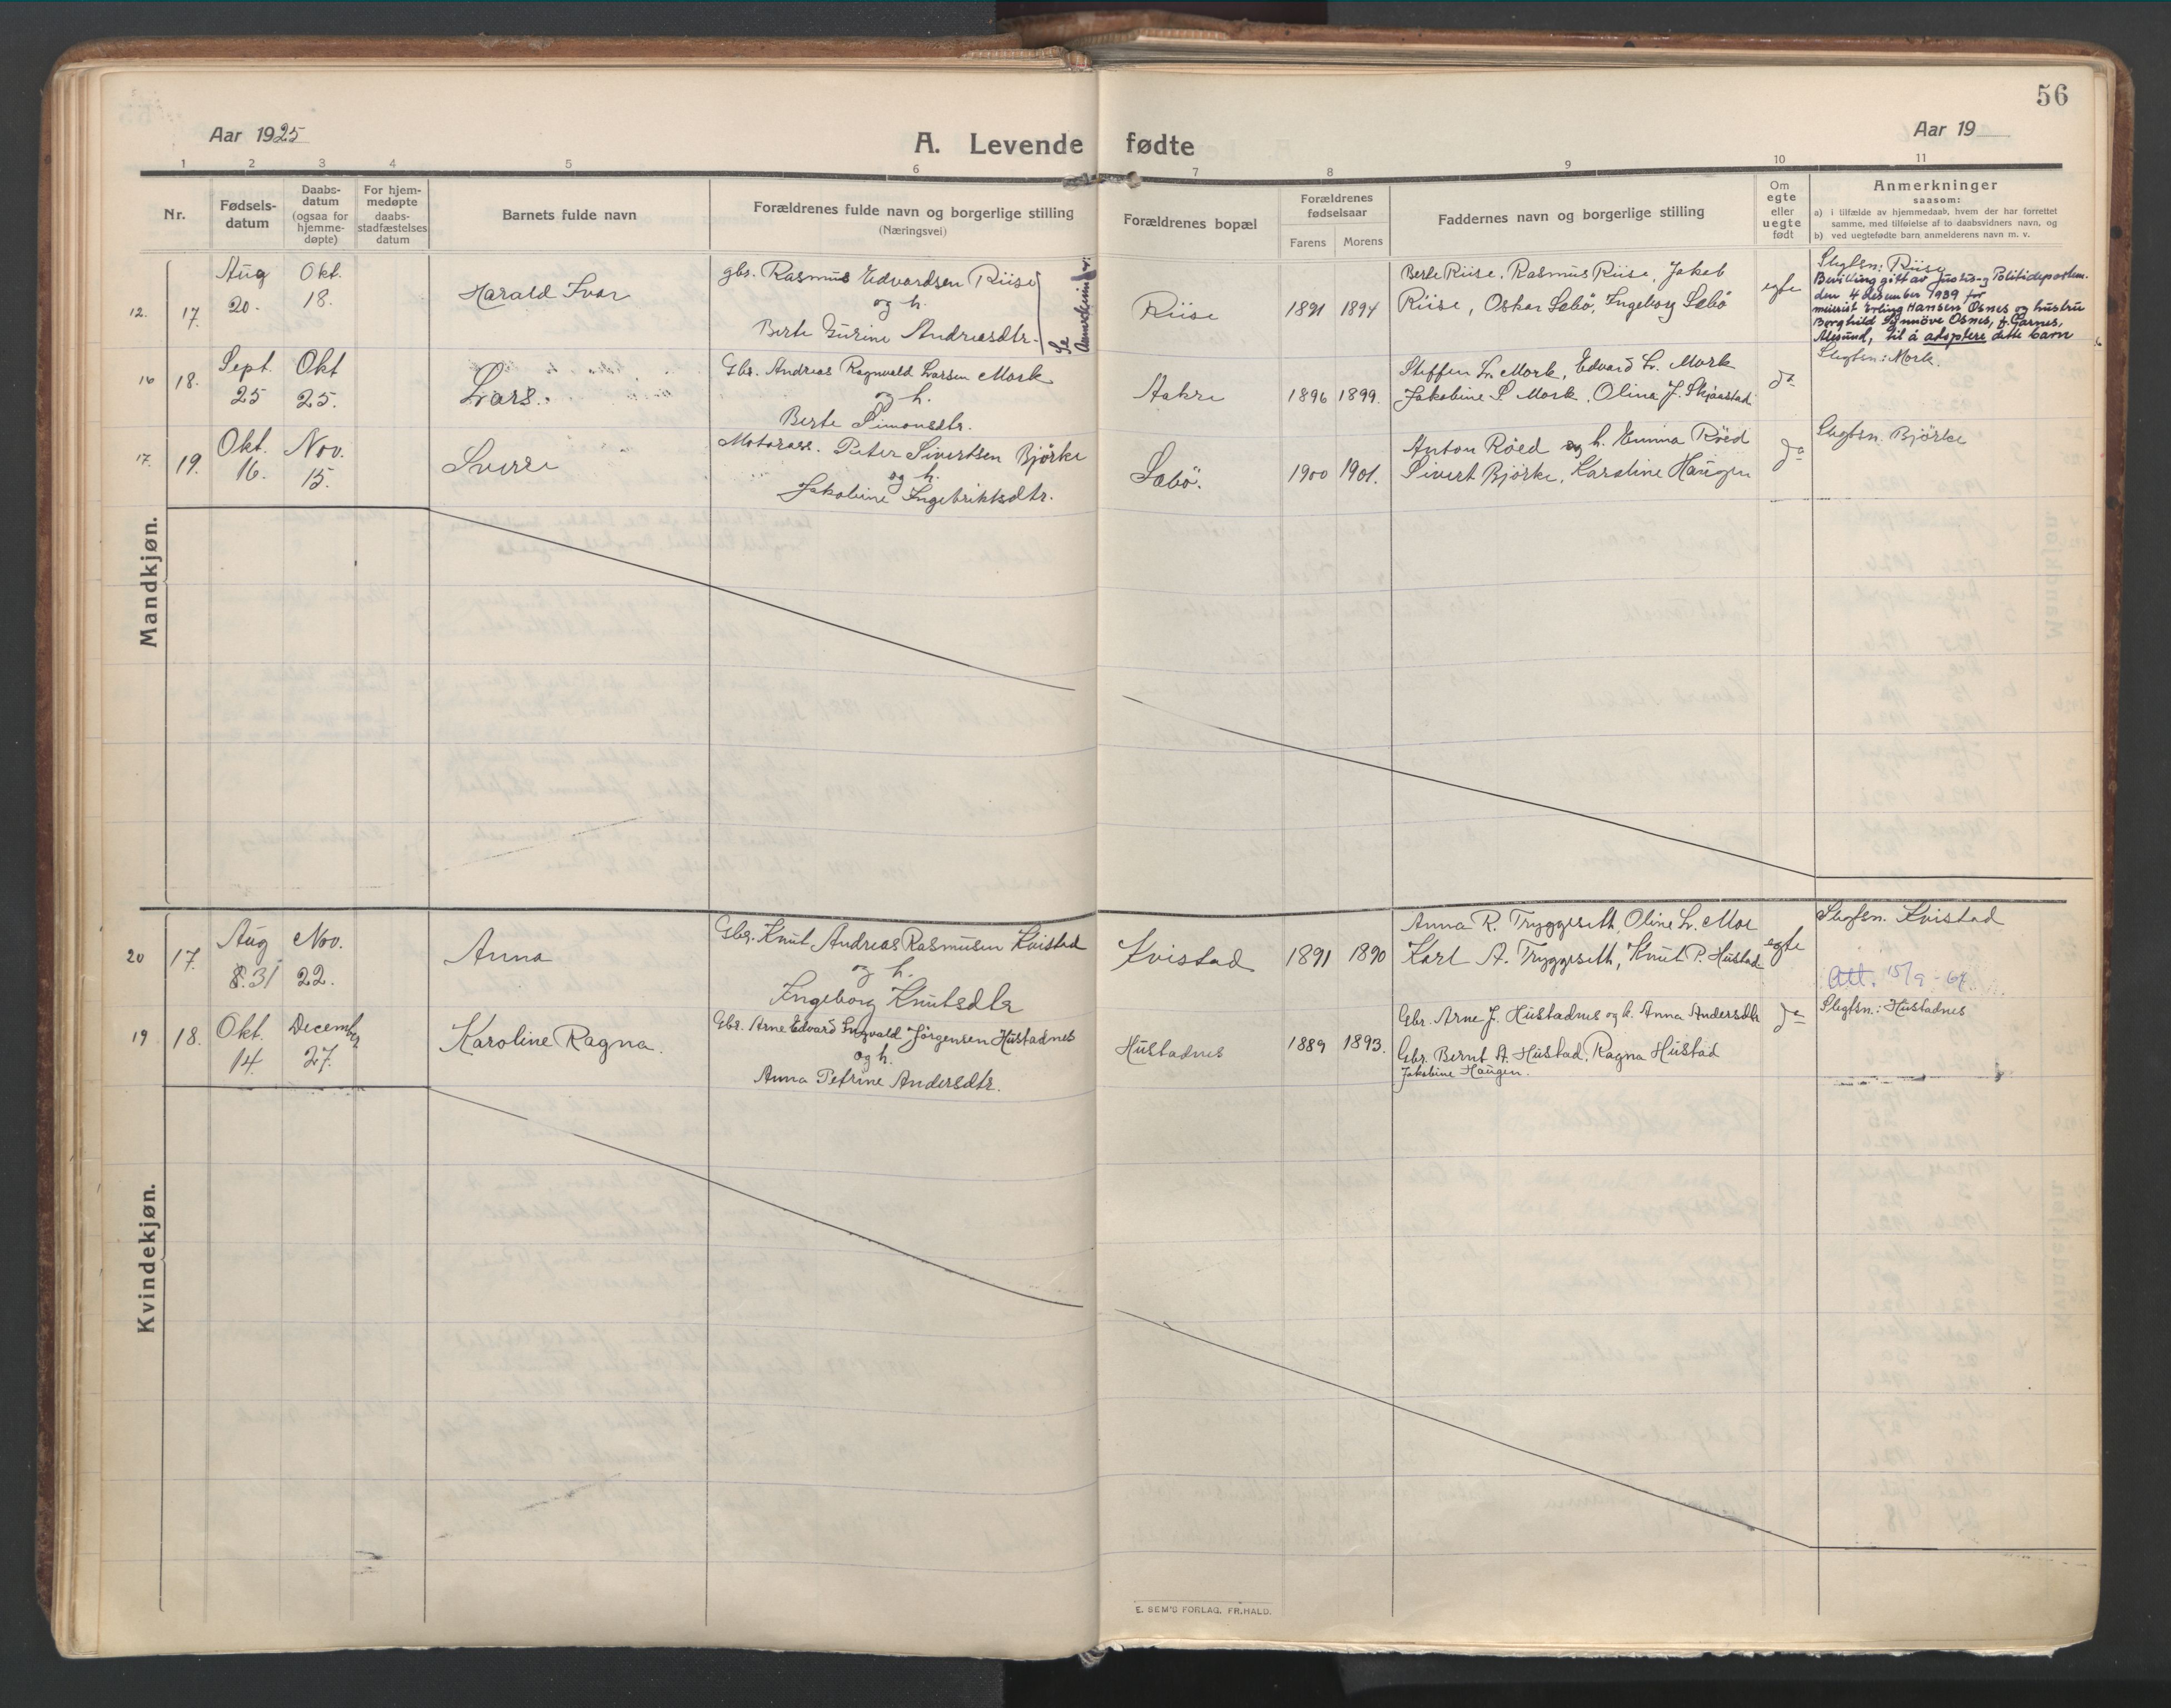 56
Aar 1925
A. Levende fødte
Aar 19
1 2 3 4 5 6 7 8 9 10 11
Nr.
Fødsels-
datum
Daabs-
datum
(ogsaa for
hjemme-
døpte)
For hjem-
medøpte
daabs-
stadfæstelses
datum
Barnets fulde navn
Forældrenes fulde navn og borgerlige stilling
(Næringsvei)
Forældrenes bopæl
Forældrenes
fødselsaar
Farens Morens
Faddernes navn og borgerlige stilling
Om
egte
eller
uegte
født
Anmerkninger
saasom:
a) i tilfælde av hjemmedaab, hvem der har forrettet
samme, med tilføielse af to daabsvidners navn, og
b) ved uegtefødte barn anmelderens navn m. v.
Mandkjøn.
12. 17.
Aug
20.
Okt.
18.
Harald Ivar
gbr. Rasmus Edvardsen Riise
og h.
Berte Gurine Andreasdtr.
Se
Riise
1891 1894
Berte Riise, Rasmus Riise, Jakob
Riise, Oskar Sæbö, Ingeborg Sæbö
egte
Slegtsn: Riise
Bevilling gitt av Justis-og Politidepartem.
den 4 desember 1939 for
meierist Erling Hansen Osnes og hustru
Borghild Synnöve Osnes, f. Garnes,
Ålesund, til å adoptere dette barn
16 18.
Sept.
25
Okt
25.
Lars.
Gbr. Andreas Ragnvald Larsen Mork
og h.
Berte Simonsdtr.
Aakre
1896 1899.
Steffen L. Mork, Edvard L. Mork
Jakobine S Mork, Oline J. Skjaastad
do
Slegtsn: Mork.
17. 19.
Okt.
16.
Nov.
15.
Sverre
Motorass. Peter Sivertsen Björke
og h.
Jakobine Ingebriktsdtr.
Sæbö.
1900 1901.
Anton Röed og h. Emma Röed
Sivert Björke, Karoline Haugen
do
Slegtsn. Björke
Kvindekjøn.
20 17.
Aug
31
Nov.
22.
Anna
Gbr. Knut Andreas Rasmusen Kvistad
og h.
Ingeborg Knutsdtr
Kvistad
1891 1890
Anna R. Tryggeseth, Oline L. Moe
Karl A. Tryggeseth, Knut P. Hustad
egte
Slegtsn. Kvistad
Att. 15/9-64
19 18.
Okt.
14.
Decembr
27.
Karoline Ragna.
Gbr. Arne Edvard Ingvald Jörgensen Hustadnes
og h.
Anna Petrine Andersdtr.
Hustadnes
1889 1893.
Gbr. Arne J. Hustadnes og h. Anna Andersdtr
Gbr. Bernt A. Hustad, Ragna Hustad
Jakobine Haugen.
do
Slegtsn.: Hustadnes
E. SEM'S FORLAG, FR.HALD.